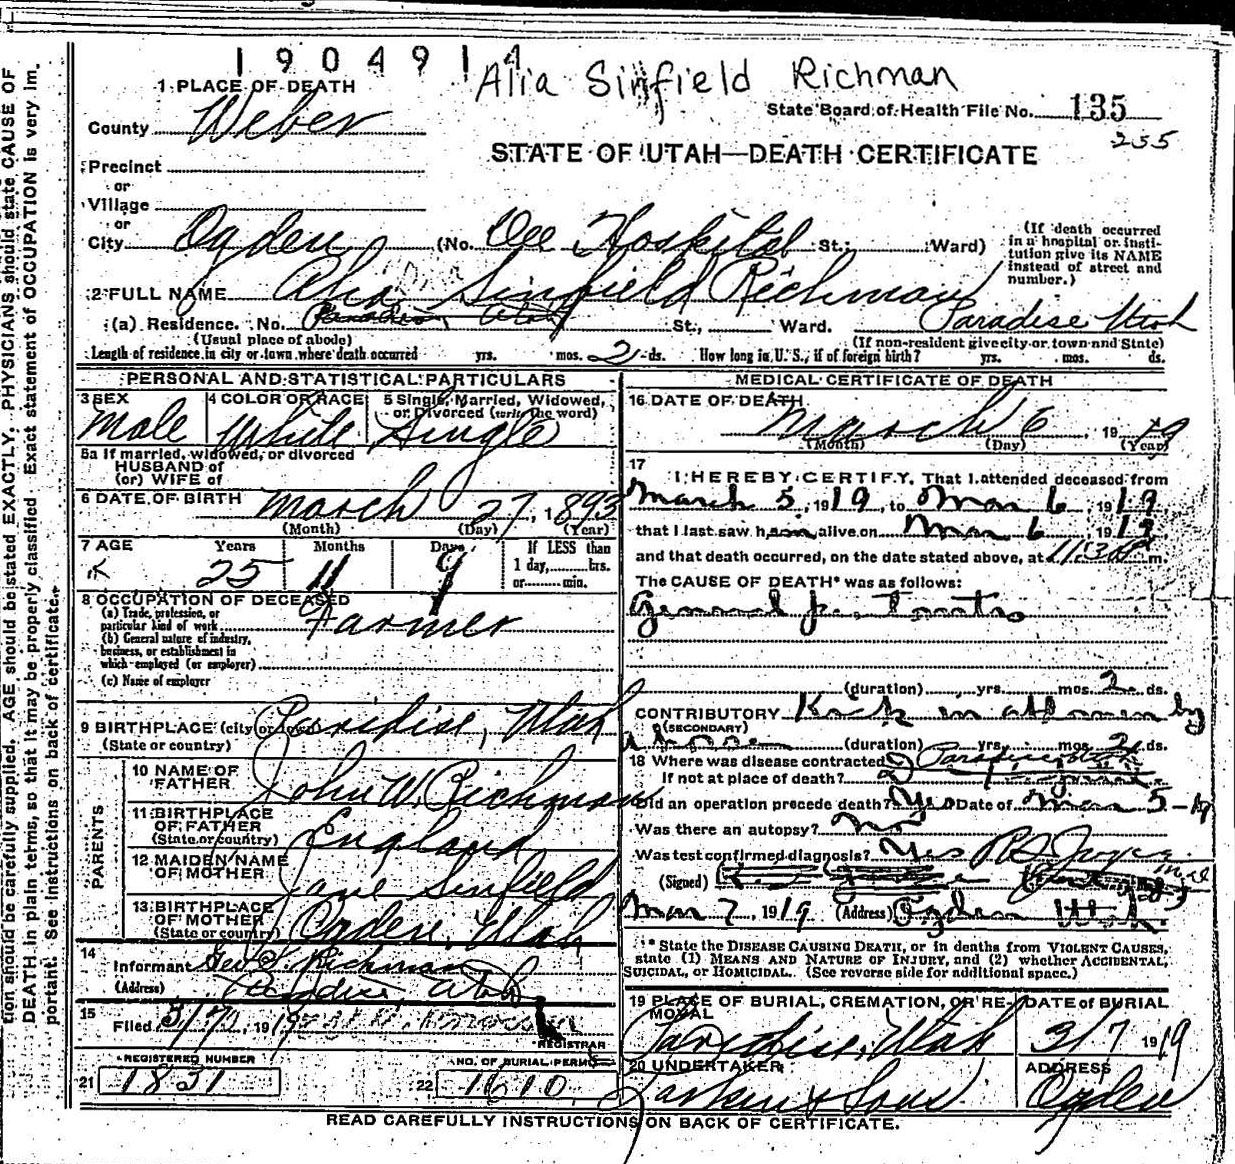 1904914
Alia Sinfield Richman
1 PLACE OF DEATH
State Board of Health File No. 135
County Weber
255
STATE OF UTAH—DEATH CERTIFICATE
Precinct
or
Village
or
City Ogden (No. Dee Hospital St.; Ward)
(If death occurred in a hospital or institution give its NAME instead of street and number.)
2 FULL NAME Alia Sinfield Richman
(a) Residence. No. Paradise, Utah St., Ward. Paradise Utah
(Usual place of abode) (If non-resident give city or town and State)
Length of residence in city or town where death occurred yrs. mos. 2 ds. How long in U.S., if of foreign birth? yrs. mos. ds.
PERSONAL AND STATISTICAL PARTICULARS
3 SEX Male
4 COLOR OR RACE White
5 Single, Married, Widowed, or Divorced (write the word) Single
5a If married, widowed, or divorced
HUSBAND of
(or) WIFE of
6 DATE OF BIRTH March 27, 1893
(Month) (Day) (Year)
7 AGE Years Months Days If LESS than
25 11 9 1 day, hrs.
or min.
8 OCCUPATION OF DECEASED
(a) Trade, profession, or particular kind of work Farmer
(b) General nature of industry, business, or establishment in which employed (or employer)
(c) Name of employer
9 BIRTHPLACE (city or town) Paridise, Utah
(State or country)
PARENTS
10 NAME OF FATHER John W. Richman
11 BIRTHPLACE OF FATHER England
(State or country)
12 MAIDEN NAME OF MOTHER Jane Sinfield
13 BIRTHPLACE OF MOTHER Ogden, Utah
(State or country)
14
Informant Geo S. Richman
(Address) Paradise, Utah
15
Filed 3/7, 1919
REGISTRAR
REGISTERED NUMBER
21 1831
NO. OF BURIAL PERMIT
22 1610
MEDICAL CERTIFICATE OF DEATH
16 DATE OF DEATH
March 6, 1919
(Month) (Day) (Year)
17
I HEREBY CERTIFY, That I attended deceased from
March 5, 1919, to Mar 6, 1919
that I last saw him alive on Mar 6 1919
and that death occurred, on the date stated above, at 11:30 m.
The CAUSE OF DEATH* was as follows:
General
(duration) yrs. mos. 2 ds.
CONTRIBUTORY Kick in abdomen by
(SECONDARY)
a horse (duration) yrs. mos. 2 ds.
18 Where was disease contracted
If not at place of death?
Did an operation precede death? Yes Date of Mar 5-19
Was there an autopsy? no
Was test confirmed diagnosis? Yes
(Signed)
Mar 7, 1919 (Address) Ogden Utah
* State the DISEASE CAUSING DEATH, or in deaths from VIOLENT CAUSES, state (1) MEANS AND NATURE OF INJURY, and (2) whether ACCIDENTAL, SUICIDAL, or HOMICIDAL. (See reverse side for additional space.)
19 PLACE OF BURIAL, CREMATION, OR REMOVAL Paradise, Utah
DATE of BURIAL 3/7 1919
20 UNDERTAKER Larkin & Sons
ADDRESS Ogden
READ CAREFULLY INSTRUCTIONS ON BACK OF CERTIFICATE.
tion should be carefully supplied. AGE should be stated EXACTLY. PHYSICIANS should state CAUSE OF
DEATH in plain terms, so that it may be properly classified. Exact statement of OCCUPATION is very im-
portant. See instructions on back of certificate.